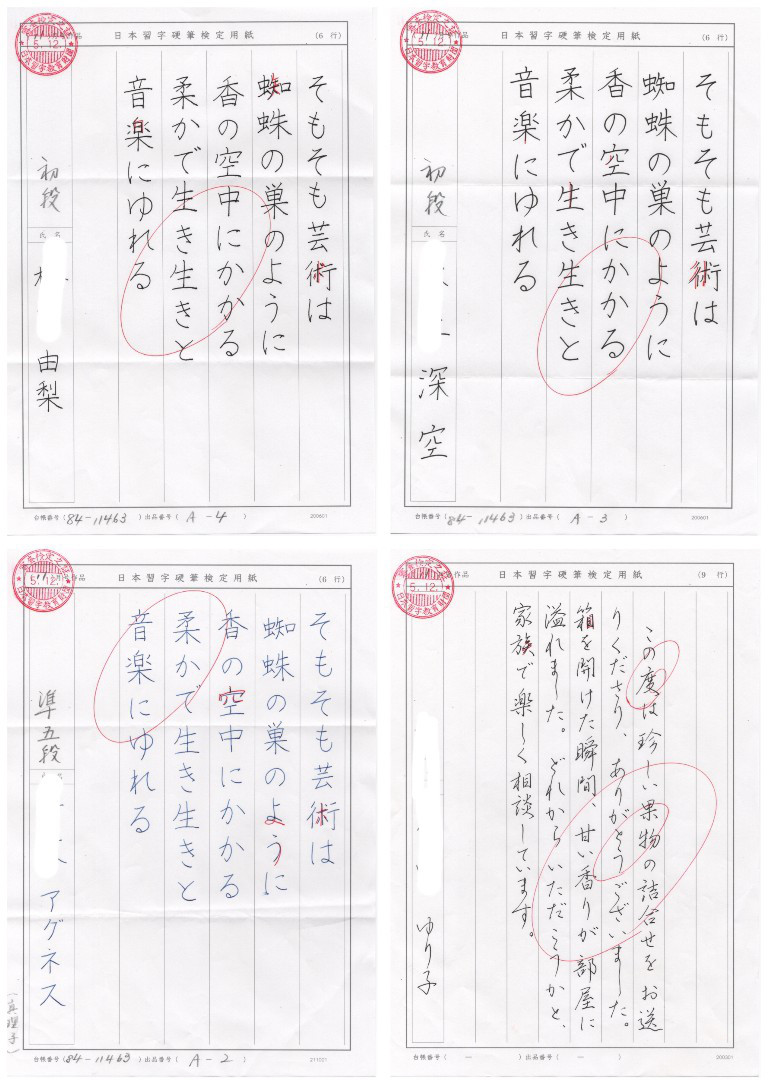 日本習字硬筆検定用紙
(6 行)
そもそも芸術は
蜘蛛の巣のように
香の空中にかかる
柔かで生き生きと
音楽にゆれる
初段
氏名
由梨
台帳番号（84-11463）出品番号（ A-4 ）
200801
5.12.
日本習字教育財団
日本習字硬筆検定用紙
(6 行)
そもそも芸術は
蜘蛛の巣のように
香の空中にかかる
柔かで生き生きと
音楽にゆれる
初段
氏名
深空
台帳番号（84-11463）出品番号（ A-3 ）
5.12.
日本習字教育財団
作品
日本習字硬筆検定用紙
(6 行)
そもそも芸術は
蜘蛛の巣のように
香の空中にかかる
柔かで生き生きと
音楽にゆれる
準五段
アグネス
（真理子）
台帳番号（84-11463）出品番号（ A-2 ）
5.12.
日本習字教育財団
作品
日本習字硬筆検定用紙
(9 行)
この度は珍しい果物の詰合せをお送
りくださり、ありがとうございました。
箱を開けた瞬間、甘い香りが部屋に
溢れました。どれからいただこうかと、
家族で楽しく相談しています。
ゆり子
台帳番号（ － ）出品番号（ － ）
5.12.
日本習字教育財団